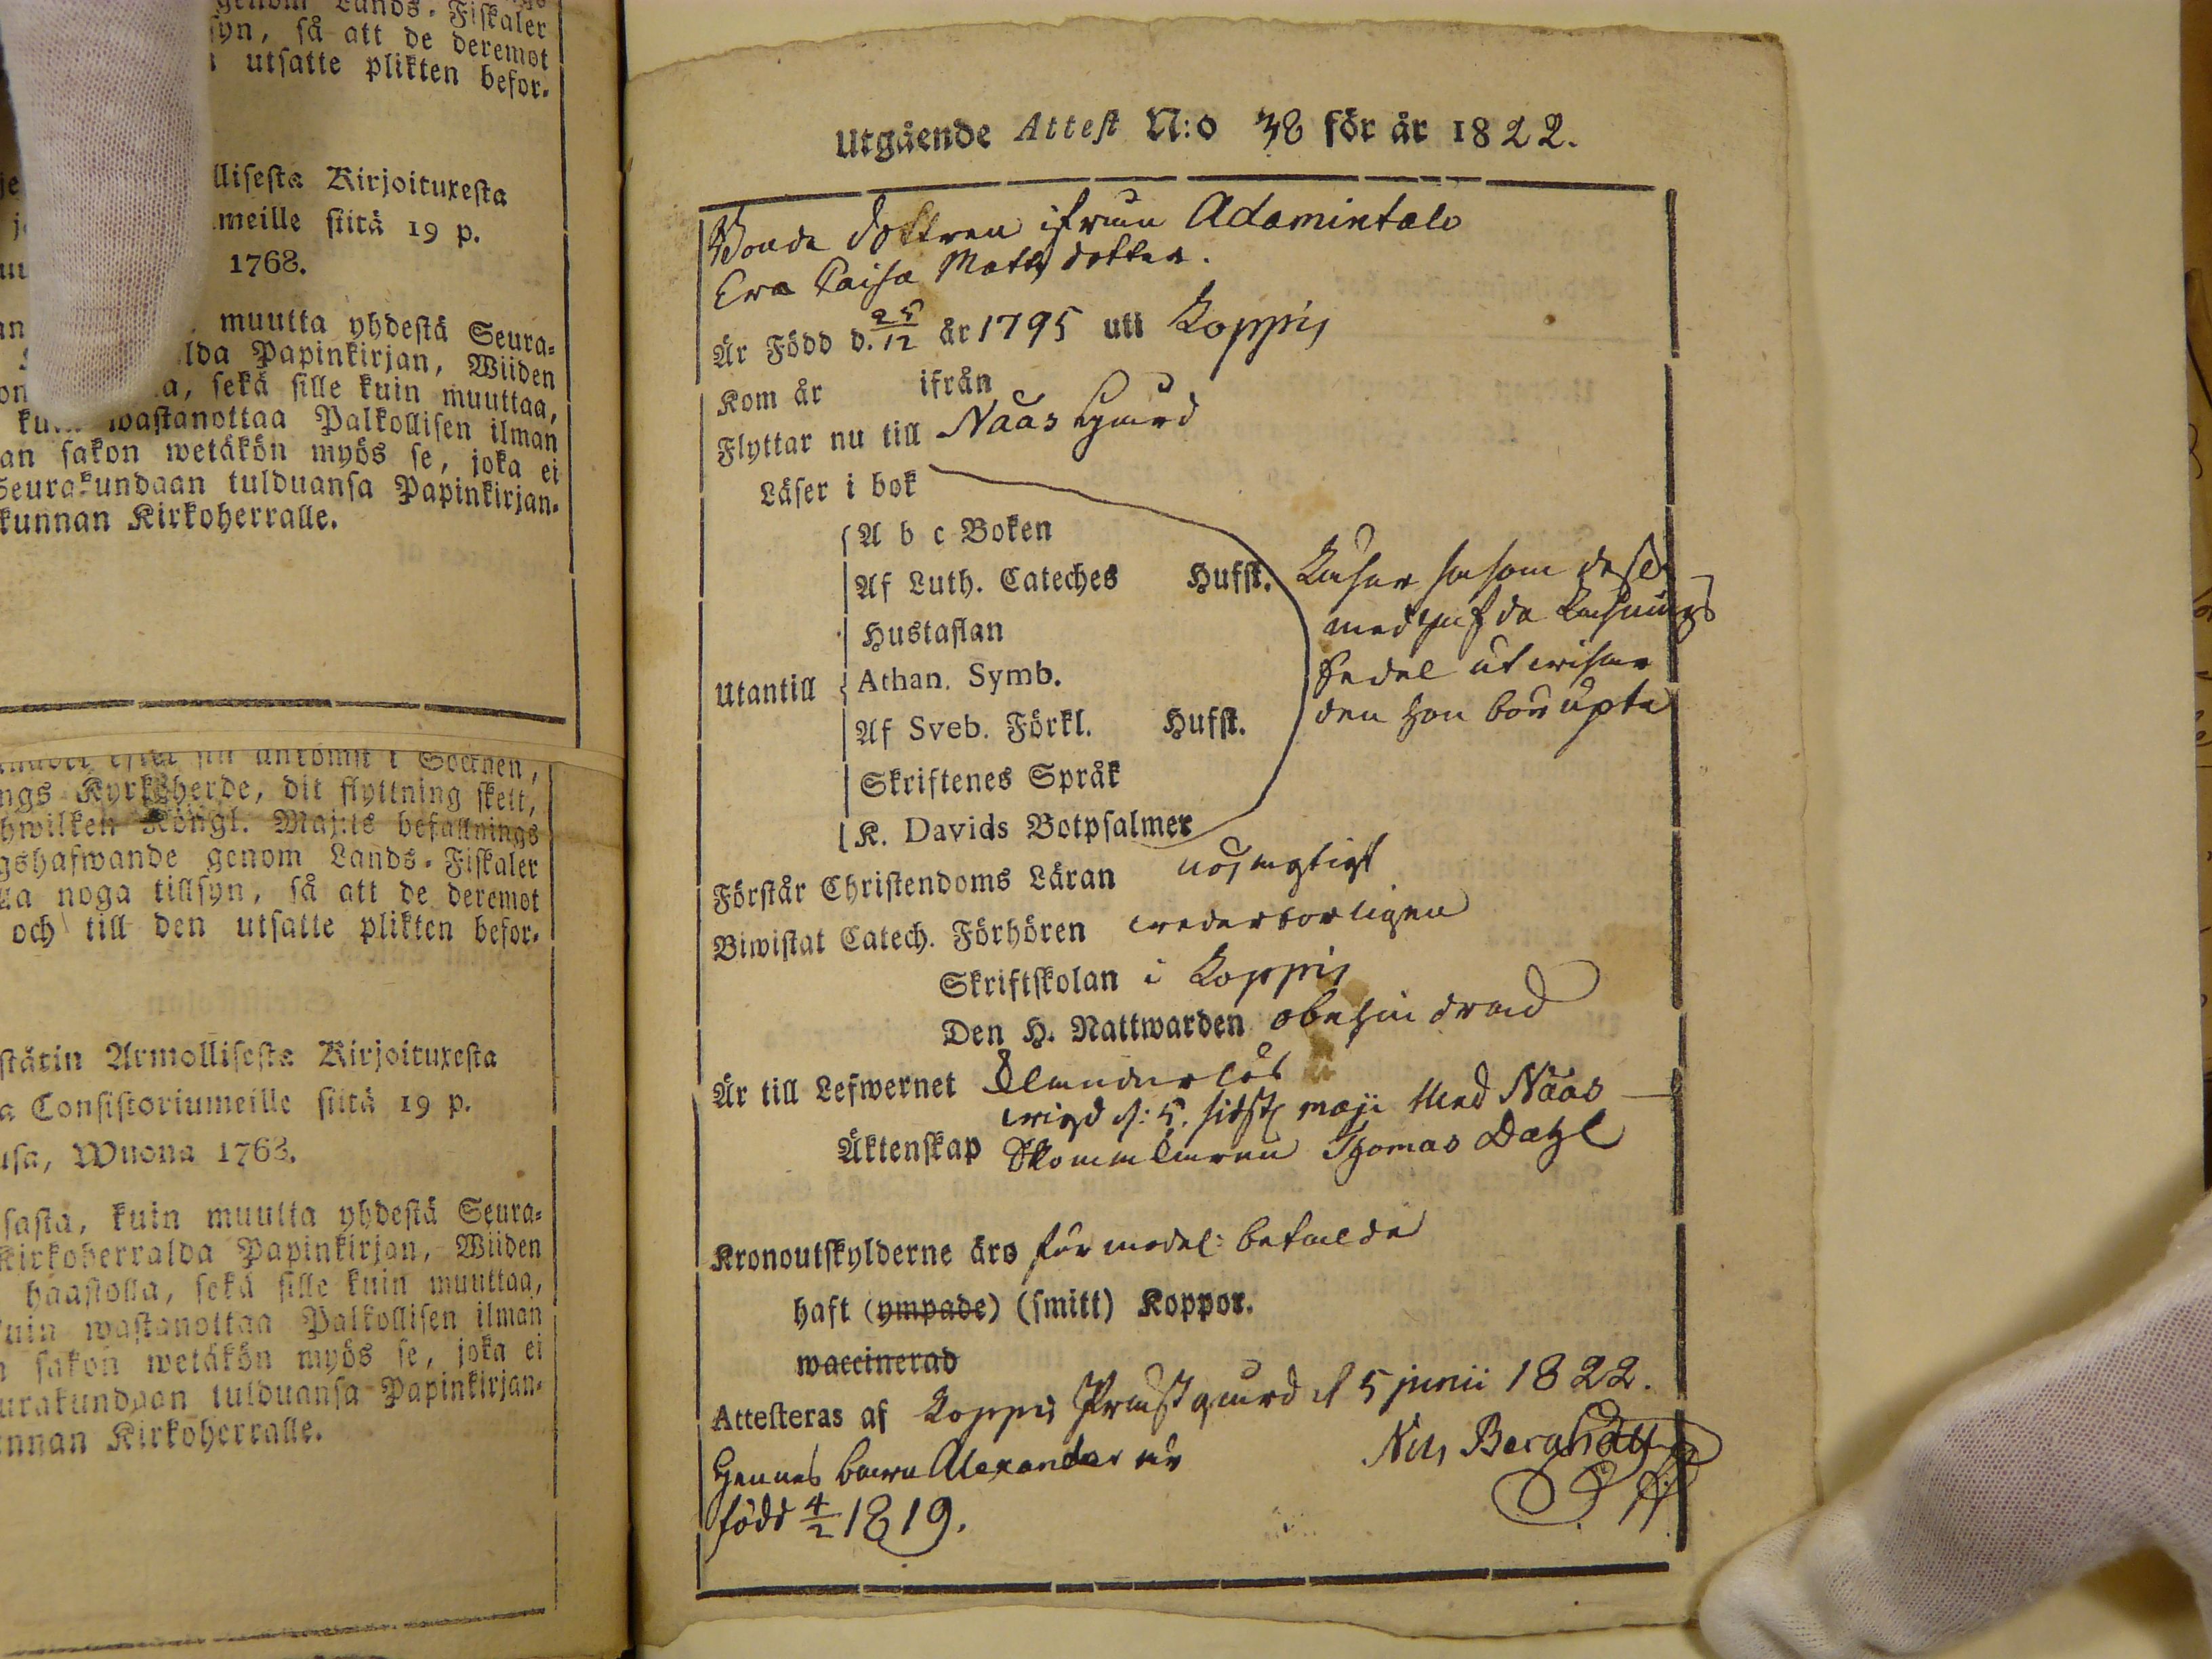 genom Lands-Fiskaler
syn, så att de deremot
utsatte plikten befor-
llisesta Kirjoituxesta
meille siitä 19 p.
1768.
muutta yhdestä Seura-
lda Papinkirjan, Wiiden
a, sekä sille kuin muuttaa,
wastanottaa Palkollisen ilman
an sakon wetäkön myös se, joka ei
Seurakundaan tulduansa Papinkirjan-
kunnan Kirkoherralle.
ankomst i Socknen,
ngs Kyrkoherde, dit flyttning skett,
hwilken Köngl. Maj:ts befallnings
gshafwande genom Lands-Fiskaler
noga tillsyn, så att de deremot
och till den utsatte plikten befor-
stätin Armollisesta Kirjoituxesta
a Consistoriumeille siitä 19 p.
usa, Wuona 1768.
sasta, kuin muutta yhdestä Seura-
Kirkoherralda Papinkirjan, Wiiden
haastolla, sekä sille kuin muuttaa,
kuin wastanottaa Palkollisen ilman
sakon wetäkön myös se, joka ei
urakundaan tulduansa Papinkirjan-
unnan Kirkoherralle.
Utgående Attest N:o 38 för år 1822.
Bonde dottren ifrån Adamintalo
Eva Caisa Matts dotter.
Är Född d. 25/12 år 1795 uti Koppis
Kom år ifrån
Flyttar nu till Näås gård
Läser i bok
A b c Boken
Af Luth. Cateches Hufst.
Läser såsom dess
medhafda Läsnings
Hustaflan
Sedel utwisar
Utantill Athan. Symb.
den hon bör upte
Af Sveb. Förkl. Hufst.
Skriftenes Språk
K. Davids Botpsalmer
Förstår Christendoms Läran nöjagtigt
Biwistat Catech. Förhören wederbörligen
Skriftskolan i Koppis
Den H. Nattwarden obehindrad
Är till Lefwernet klanderlös
wigd d: 5. sidstl maji Med Näås
Äktenskap Stommkaren Thomas Dahl
Kronoutskylderne äro förmodel: betalde
haft (ympade) (smitt) Koppor.
waccinerad
Attesteras af Koppis Prästgård d 5 junii 1822.
Hennes barn Alexander är
Nils Berghäll
född 4/2 1819.